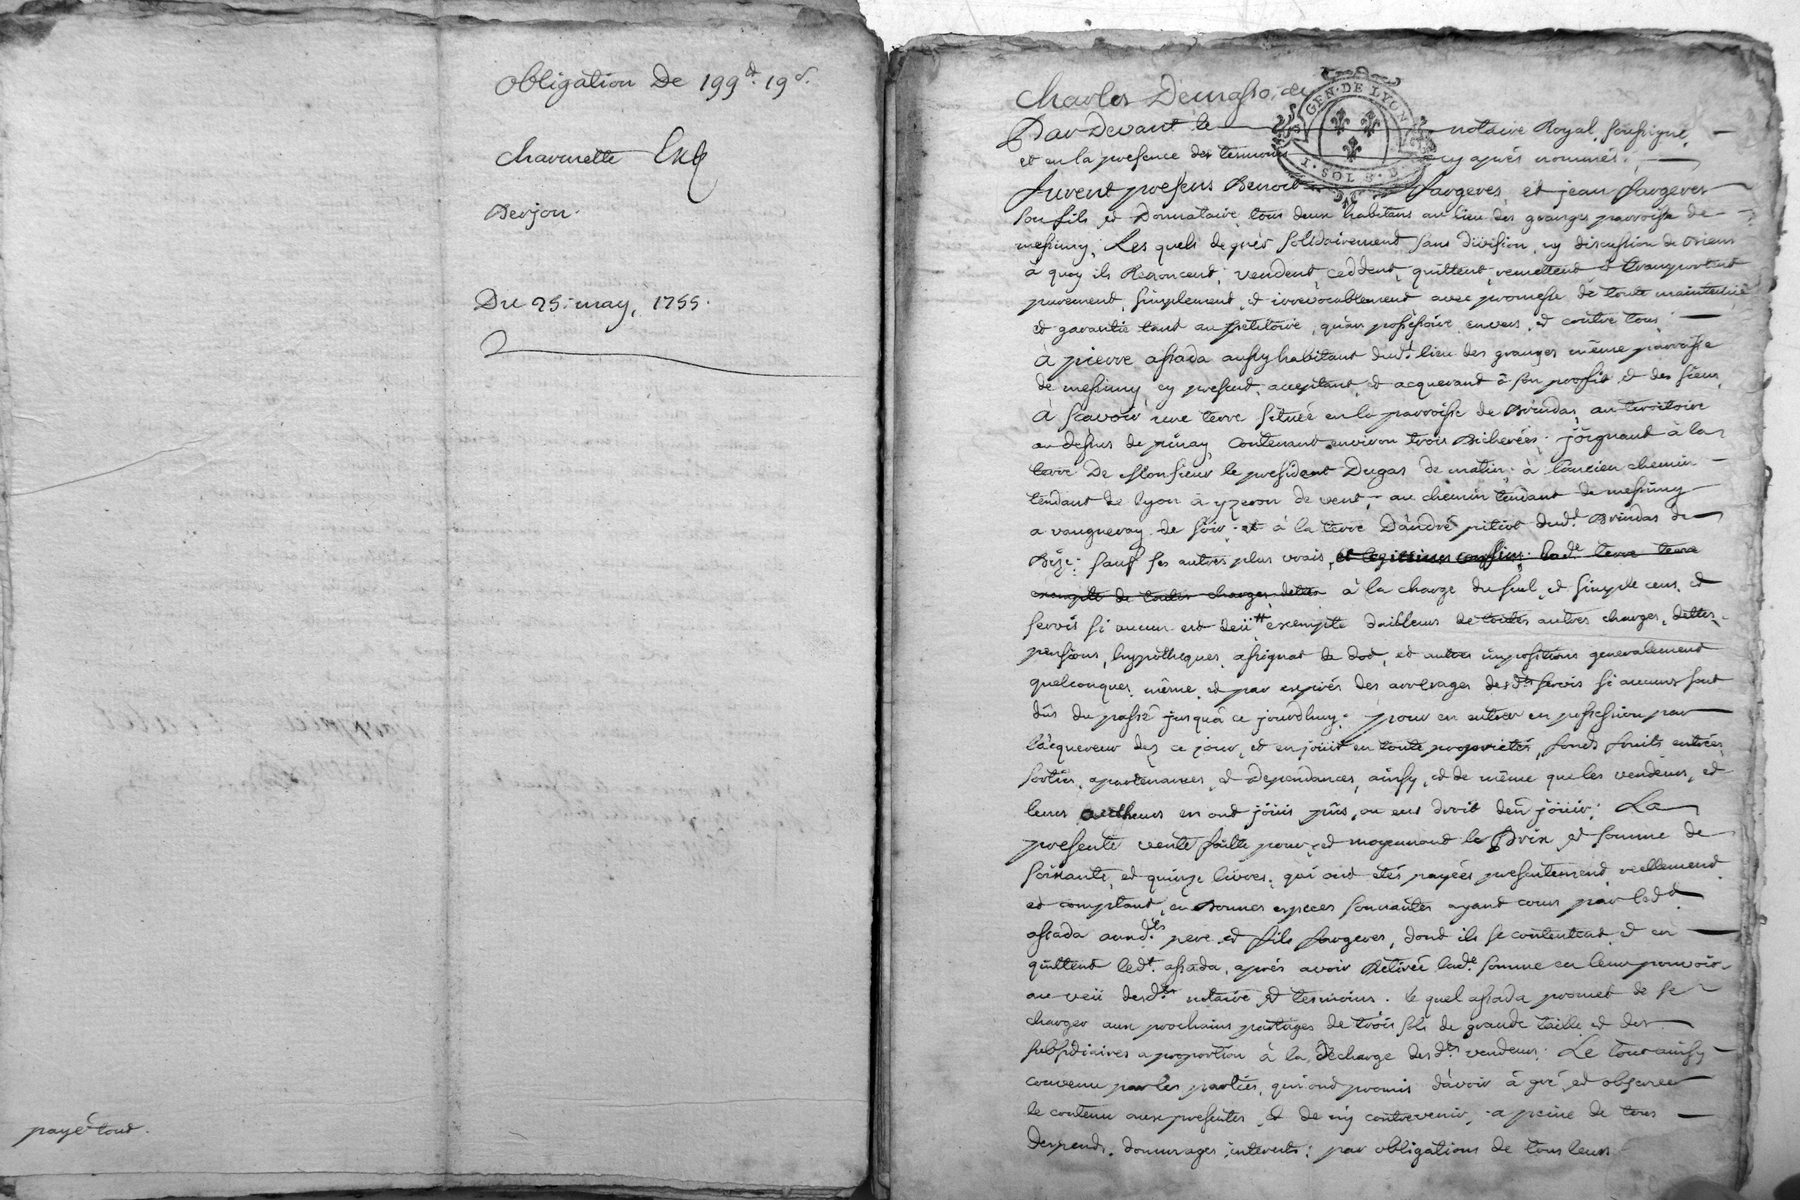 Obligation De 199# 19s.
Charvrette
Berjon.
Du 25 may, 1755.
payé tout.
Charles Demasso, 
GEN. DE LYON
1. SOL 8. D
Par Devant le notaire Royal, soussigné,
et en la presence des temoins cy aprés nommés.
furent presens Benoit fargeres, et jean fargeres
son fils, et Donnataire, tous deux habitans au lieu des granges parroisse de
messimy; Les quels de grés solidairement sans division, ny discussion de Biens
à quoy ils Renoncent; vendent, ceddent, quittent, remettent et transportent
purement, simplement, et irrevocablement avec promesse de toute maintenüe
et garantie tant au petitoire, qu'au possessoire envers, et contre tous;
à pierre assada aussy habitant dudt. lieu des granges même parroisse
de messimy, cy present, acceptant, et acquerant à son proffit et des siens,
à sçavoir une terre située en la parroisse de Brindas, au territoire
au dessus de pinay, contenant environ trois Bicherées; joignant à la
terre De Monsieur le president Dugas de matin; à l'ancien chemin
tendant de lyon à yzeron de vent; au chemin tendant de messimy
a vaugneray de soir; et à la terre D'andré pitiot dudt. Brindas de
Bize; sauf ses autres plus vrais, et legitimes confins; lade. terre
exempte de toutes charges, dettes à la charge du seul, et simple cens, et
servis si aucun est deü # exempte d'ailleurs de toutes autres charges, dettes,
pensions, hypotheques, assignat de dot, et autres impositions generalement
quelconques, même, et par exprés des arrerages desdts. servis si aucuns sont
dûs du passé jusqu'à ce jourdhuy; pour en entrer en possession par
l'acquereur dez ce jour, et en joüir en toute proprietés, fonds fruits entrées,
sorties, apartenances, et dependances, ainsy, et de même que les vendeurs, et
leurs autheurs en ont joüis, pûs, ou eus droit d'en joüir; La
presente vente faitte pour, et moyennant le Prix, et somme de
soixante, et quinze livres; qui ont étés payées presentement, reellement
et comptant, en Bonnes especes sonnantes ayant cours par ledt.
assada auxdts. pere et fils fargeres, dont ils se contentent et en
quittent ledt. assada, aprés avoir Retirée lade. somme en leur pouvoir,
au veü desdts. notaire et temoins. le quel assada promet de se
charger aux prochains partages de trois sols de grande taille et des
subsidiaires a proportion à la décharge desdts. vendeurs; Le tout ainsy
convenu par les parties, qui ont promis d'avoir à gré, et observer
le contenu aux presentes, et de n'y contrevenir, a peine de tous
depends, dommages, interests; par obligations de tous leurs